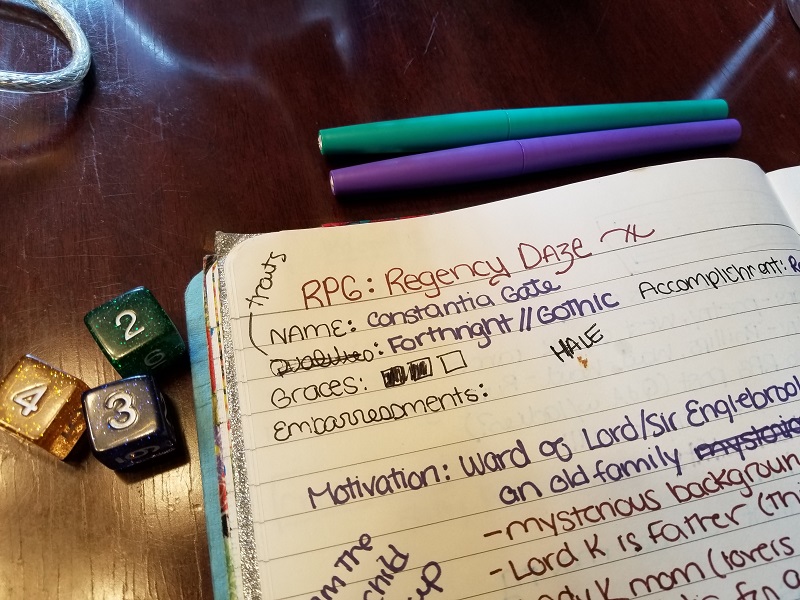 traits
RPG: Regency DAZE
NAME: Constantia Gate
Accomplishment:
: Forthright // GOTHIC
HALE
Graces:
Embarressments:
Motivation: Ward of Lord/Sir Englebrook
an old family
- mysterious background
- Lord K is Father (thi
dy K mom (lovers
the
child
up
2
6
4
3